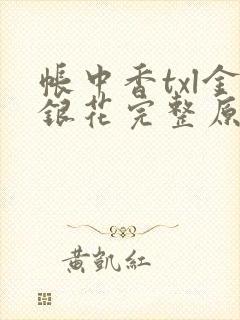 帳中香txl金
銀花完整原
黃凱紅